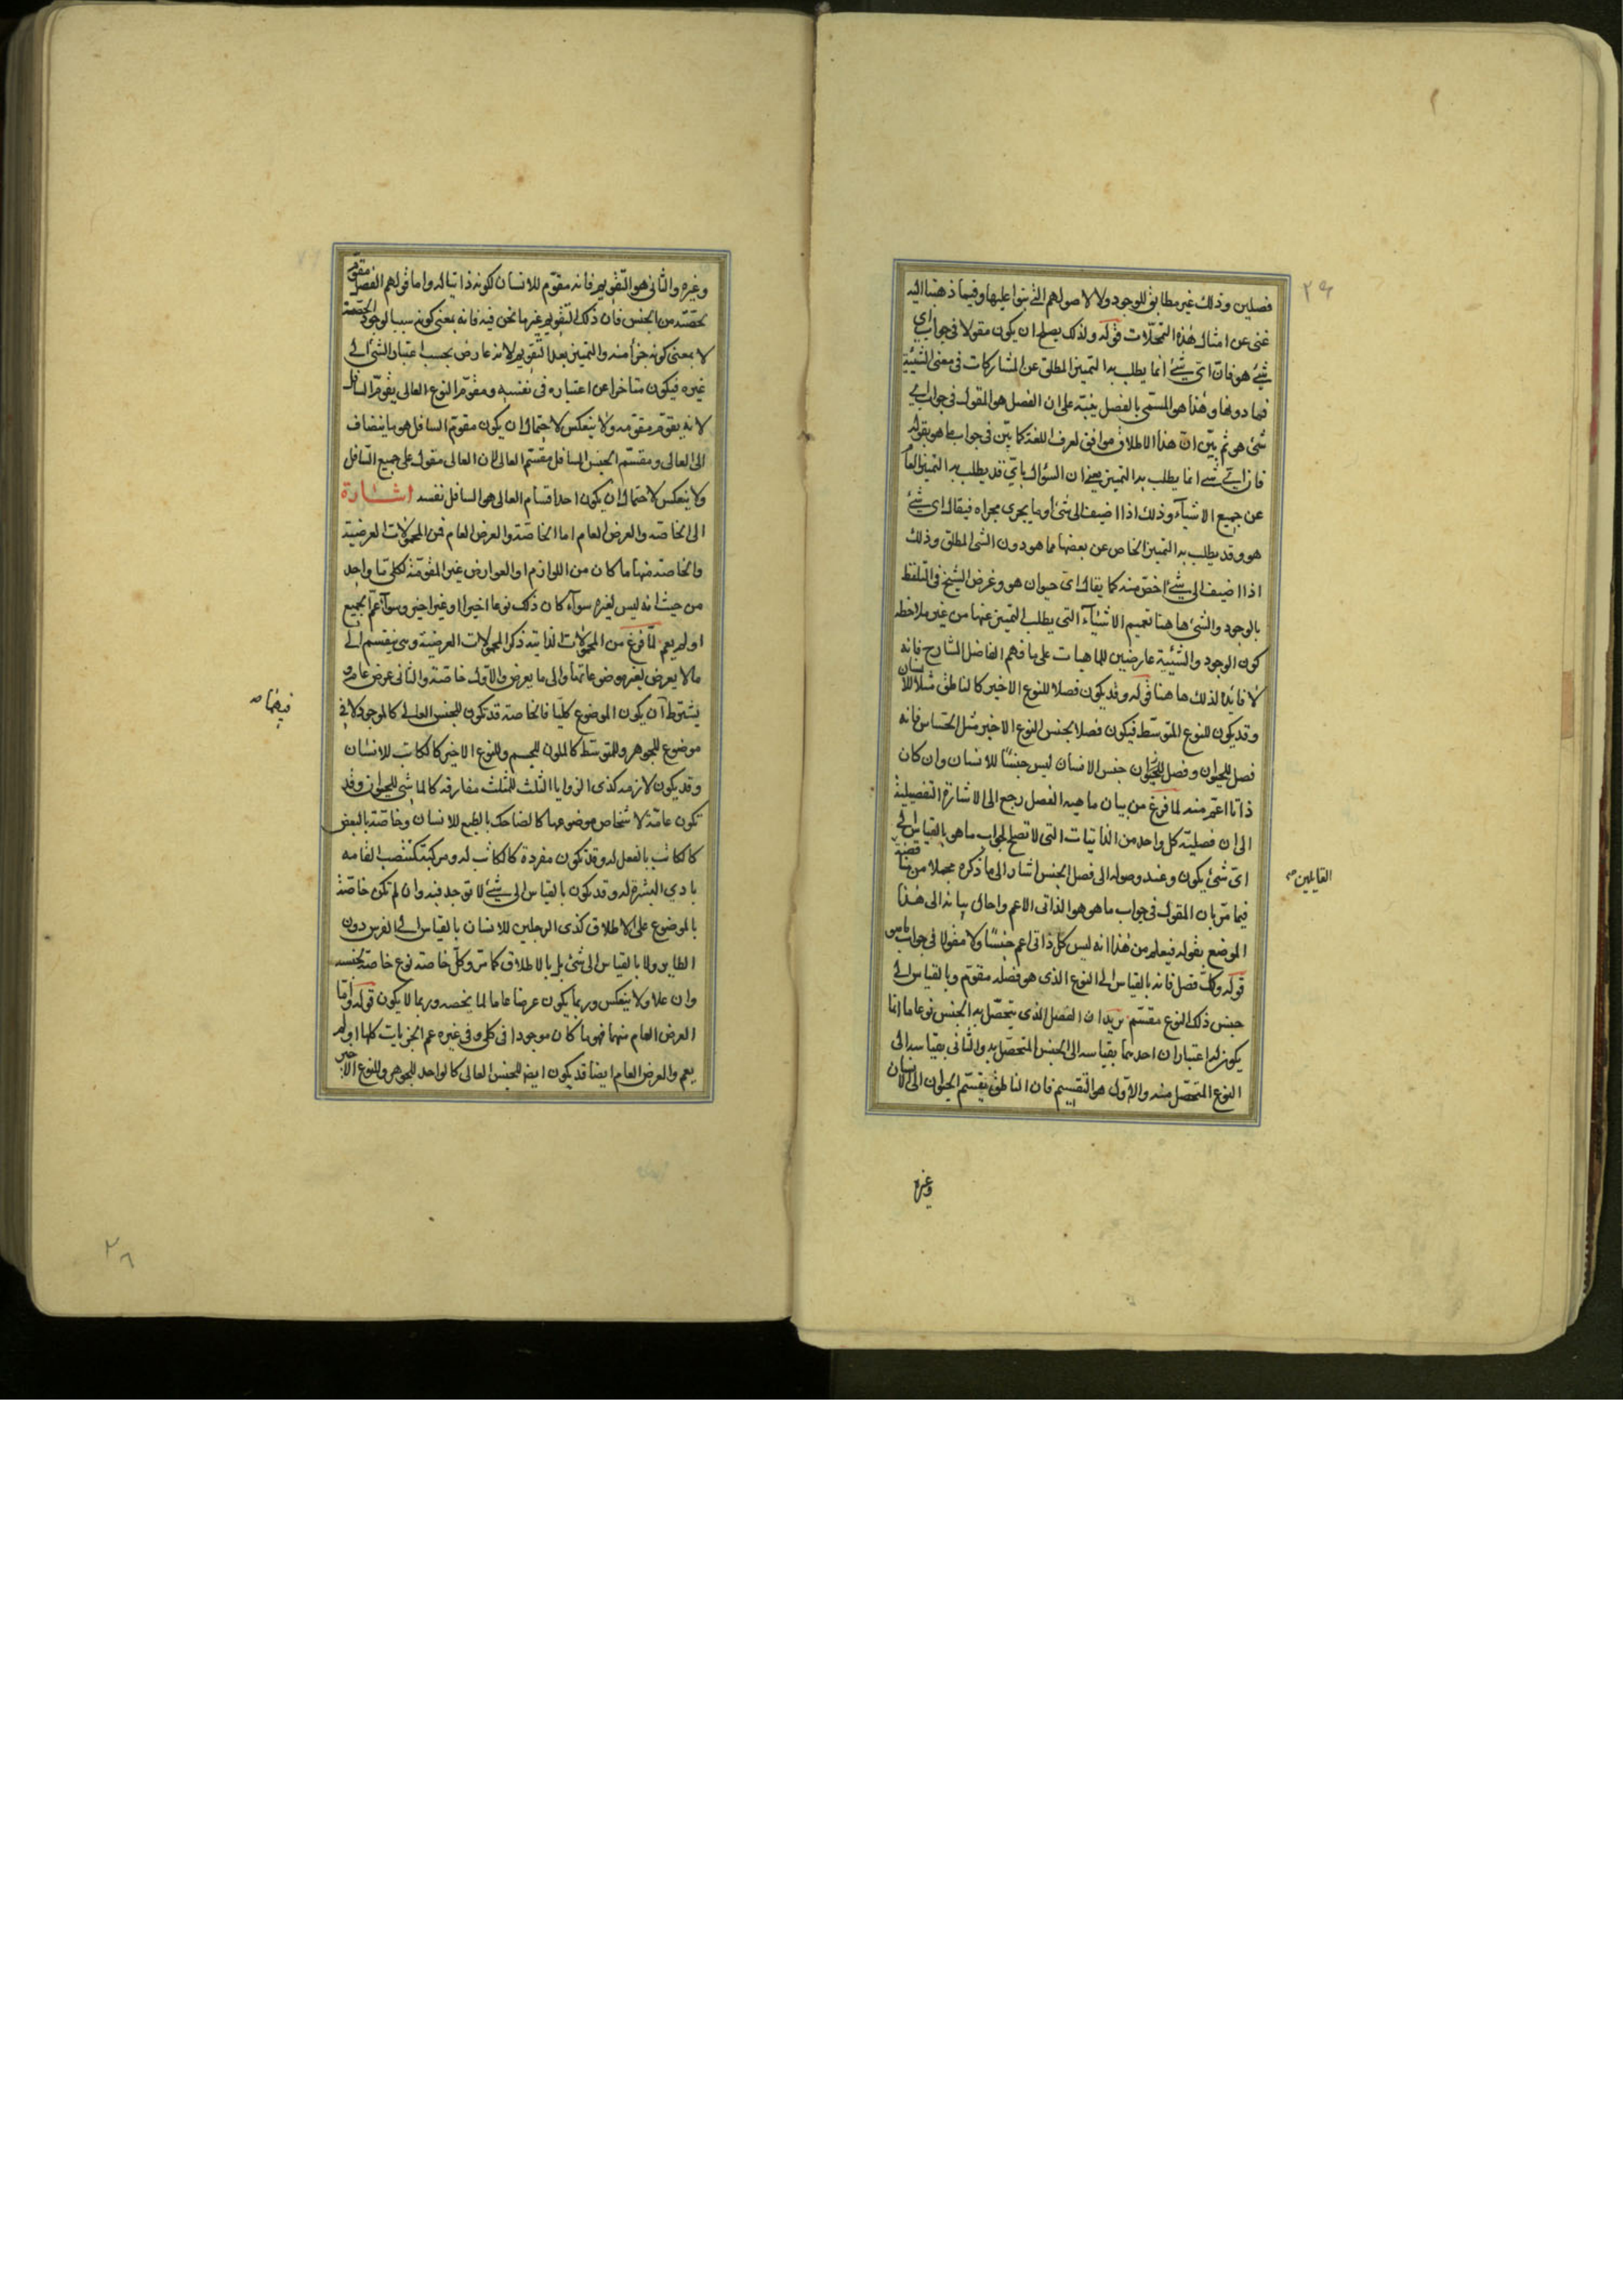 فصلين وذلك غير مطابق للوجود ولا لاصولهم التي بنوا عليها وفيما ذهبنا اليه
غنى عن امثال هذه التمحلات قوله ولذلك يصلح ان يكون مقولا في جواب اي
شيء هو فان اي شيء انما يطلب به التميز المطلق عن المشاركات في معنى الشيئية
فما دونها وهذا هو المسمى بالفصل ينبه على ان الفصل هو المقول في جواب اي
شيء هو ثم بين ان هذا الاطلاق موافق لعرف اللغة كما بين في جواب ما هو بقوله
فان اي شيء انما يطلب به التميز يعني ان السؤال باي قد يطلب به التميز العام
عن جميع الاشياء وذلك اذا اضيف الى شيء او ما يجرى مجراه فيقال اي شيء
هو وقد يطلب به التميز الخاص عن بعضها مما هو دون الشي المطلق وذلك
اذا اضيف الى شيء اخص منه كما يقال اي حيوان هو وغرض الشيخ في التلفظ
بالوجود والشيء هاهنا تعميم الاشياء التي يطلب التميز عنها من غير ملاحظة
كون الوجود والشيئية عارضين للماهيات على ما فهم الفاضل الشارح فانه
لا فايدة لذلك هاهنا قوله وقد يكون فصلا للنوع الاخير كالناطق مثلا للانسان
وقد يكون للنوع المتوسط فيكون فصلا لجنس النوع الاخير مثل الحساس فانه
فصل للحيوان وفصل للحيوان جنس الانسان ليس جنسا للانسان وان كان
ذاتيا اعم منه لما فرغ من بيان ماهية الفصل رجع الى الاشارة التفصيلية
الى ان فصلية كل واحد من الذاتيات التي لا تصلح لجواب ما هو بالقياس الى
اي شيء يكون وعند وصوله الى فصل الجنس اشار الى ما ذكره مجملا من مناقضة
القايلين
فيما مر بان المقول في جواب ما هو هو الذاتي الاعم واحال بيانه الى هذا
الموضع بقوله فيعلم من هذا انه ليس كل ذاتي اعم جنسا ولا مقولا في جواب ما هو
قوله وكل فصل فانه بالقياس الى النوع الذى هو فصله مقوم وبالقياس الى
جنس ذلك النوع مقسم يريد ان الفصل الذى يتحصل به الجنس نوعا ما انما
يكون له اعتباران احدهما بقياسه الى الجنس المتحصل به والثاني بقياسه الى
النوع المتحصل منه والاول هو التقسيم فان الناطق يقسم الحيوان الى الانسان
وغيره
وغيره والثاني هو التقويم فانه مقوم للانسان لكونه ذاتيا له واما قولهم الفصل مقوم
لحصته من الجنس فان ذلك التقويم غير ما نحن فيه فانه بمعنى كونه سببا لوجود الحصة
لا بمعنى كونه جزأ منه والتميز بعد التقويم لانه عارض بحسب اعتبار الشيء الى
غيره فيكون متاخرا عن اعتباره في نفسه ومقوم النوع العالى يقوم السافل
لانه يقوم مقومه ولا ينعكس لاحتمال ان يكون مقوم السافل هو ما ينضاف
الى العالى ومقسم الجنس السافل مقسم العالى لان العالى مقول على جميع السافل
ولا ينعكس لاحتمال ان يكون احد اقسام العالى هو السافل نفسه اشارة
الى الخاصة والعرض العام اما الخاصة والعرض العام فمن المحمولات العرضية
والخاصة منها ما كان من اللوازم او العوارض غير المقومة لكلي ما واحد
من حيث انه ليس لغيره سواء كان ذلك نوعا اخيرا او غير اخير وسواء عم الجميع
او لم يعم لما فرغ من المحمولات الذاتية ذكر المحمولات العرضية وهي ينقسم الى
ما لا يعرض لغير موضوعاتها والى ما يعرض والاول خاصة والثاني عرض عام و
فيهما
يشترط ان يكون الموضوع كليا فالخاصة قد تكون للجنس العالى كالموجود لا في
موضوع للجوهر وللمتوسط كالملون للجسم وللنوع الاخير كالكاتب للانسان
وقد يكون لازمة كذى الزوايا الثلث للمثلث مفارقة كالماشى للحيوان وقد
تكون عامة لاشخاص موضوعها كالضاحك بالطبع للانسان وخاصة بالبعض
كالكاتب بالفعل له وقد تكون مفردة كالكاتب له ومركبة كمنتصب القامه
بادي البشرة له وقد يكون بالقياس الى شيء لا توجد فيه وان لم تكن خاصة
بالموضوع على الاطلاق كذى الرجلين للانسان بالقياس الى الفرس دون
الطاير ولا بالقياس الى شئ بل بالاطلاق كما مر وكل خاصة نوع خاصة لجنسه
وان علا ولا ينعكس وربما يكون عرضا عاما لما يخصه وربما لا يكون قوله واما
العرض العام منها فهو ما كان موجودا في كلي وفي غيره عم الجزيات كلها او لم
يعم والعرض العام ايضا قد يكون ايضا للجنس العالى كالواحد للجوهر وللنوع الاخير